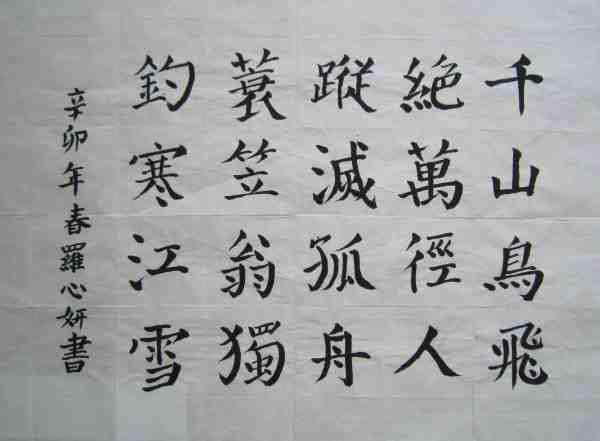 千山鳥飛
絕萬徑人
蹤滅孤舟
蓑笠翁獨
釣寒江雪
辛卯年春羅心妍書